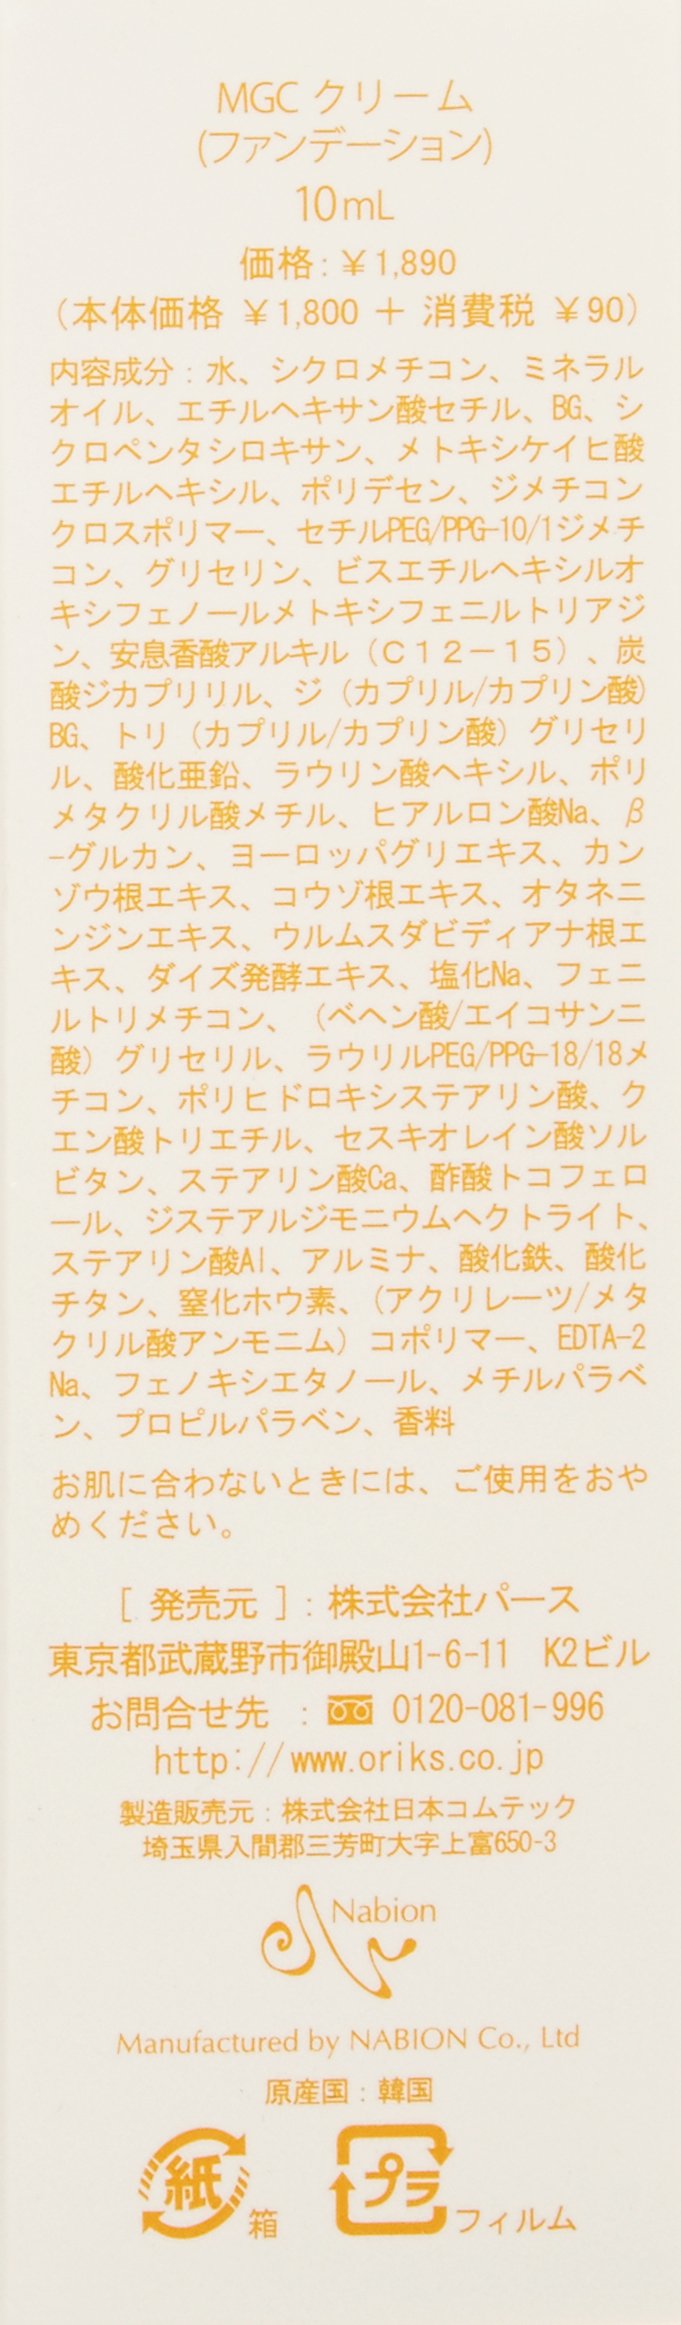 MGC クリーム
(ファンデーション)
10mL
価格:￥1,890
（本体価格 ￥1,800 ＋ 消費税 ￥90）
内容成分:水、シクロメチコン、ミネラル
オイル、エチルヘキサン酸セチル、BG、シ
クロペンタシロキサン、メトキシケイヒ酸
エチルヘキシル、ポリデセン、ジメチコン
クロスポリマー、セチルPEG/PPG-10/1ジメチ
コン、グリセリン、ビスエチルヘキシルオ
キシフェノールメトキシフェニルトリアジ
ン、安息香酸アルキル（Ｃ１２－１５）、炭
酸ジカプリリル、ジ（カプリル/カプリン酸）
BG、トリ（カプリル/カプリン酸）グリセリ
ル、酸化亜鉛、ラウリン酸ヘキシル、ポリ
メタクリル酸メチル、ヒアルロン酸Na、β
-グルカン、ヨーロッパグリエキス、カン
ゾウ根エキス、コウゾ根エキス、オタネニ
ンジンエキス、ウルムスダビディアナ根エ
キス、ダイズ発酵エキス、塩化Na、フェニ
ルトリメチコン、（ベヘン酸/エイコサン二
酸）グリセリル、ラウリルPEG/PPG-18/18メ
チコン、ポリヒドロキシステアリン酸、ク
エン酸トリエチル、セスキオレイン酸ソル
ビタン、ステアリン酸Ca、酢酸トコフェロ
ール、ジステアルジモニウムヘクトライト、
ステアリン酸Al、アルミナ、酸化鉄、酸化
チタン、窒化ホウ素、（アクリレーツ/メタ
クリル酸アンモニム）コポリマー、EDTA-2
Na、フェノキシエタノール、メチルパラベ
ン、プロピルパラベン、香料
お肌に合わないときには、ご使用をおや
めください。
［ 発売元 ］: 株式会社パース
東京都武蔵野市御殿山1-6-11 K2ビル
お問合せ先 : 0120-081-996
http://www.oriks.co.jp
製造販売元:株式会社日本コムテック
埼玉県入間郡三芳町大字上富650-3
Nabion
Manufactured by NABION Co., Ltd
原産国:韓国
紙 箱
プラ フィルム